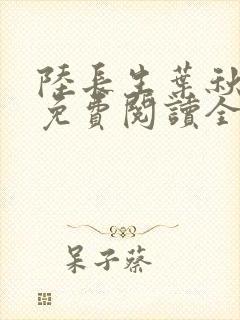 陸長生葉秋
免費閱讀全
呆子蔡